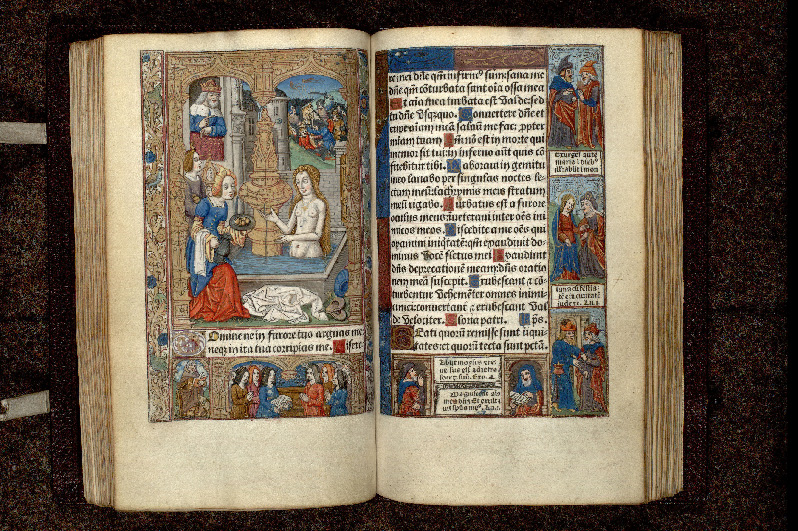 Domine ne in furore tuo arguas me
neq; in ira tua corripias me. Mise
re mei dñe qm̃ infirmus sum: sana me
dñe qm̃ cõturbata sunt oĩa ossa mea
Et aĩa mea turbata est valde: sed
tu dñe vsquequo. Convertere dñe et
eripe aĩam meã: salvũ me fac propter
miam tuam. Qm̃ nõ est in morte qui
memor sit tui: in inferno aũt quis cõ
fitebitur tibi. Laboravi in gemitu
meo lavabo per singulas noctes le-
ctum meũ: lachrymis meis stratum
meũ rigabo. Turbatus est a furore
oculus meus: inveteravi inter oẽs ini
micos meos. Discedite a me oẽs qui
operamini iniq̃tatẽ: qm̃ exaudivit do-
minus vocẽ fletus mei. Exaudivit
dñs deprecationẽ meam: dñs oratio
nem meã suscepit. Erubescant et cõ
turbentur vehemẽter omnes inimi-
ci mei: convertant et erubescant val
de velociter. Gloria patri.
Beati quorũ remisse sunt iniqui
tates: et quorum tecta sunt pctã.